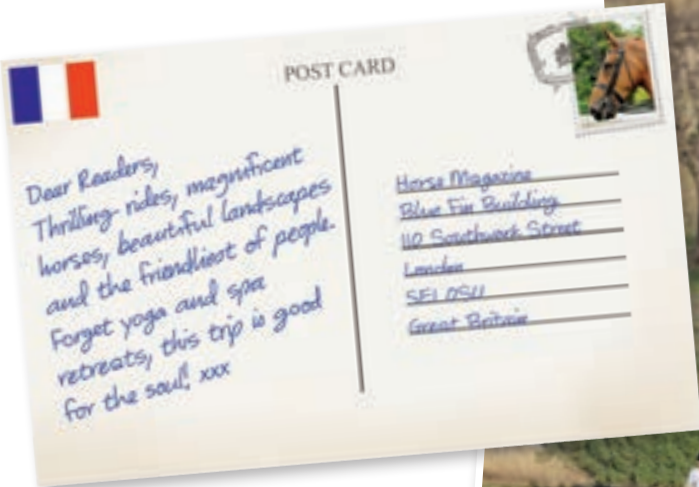 POST CARD
Dear Readers,
Thrilling rides, magnificent
horses, beautiful landscapes
and the friendliest of people.
Forget yoga and spa
retreats, this trip is good
for the soul! xxx
Horse Magazine
Blue Fin Building
110 Southwark Street
London
SE1 0SU
Great Britain